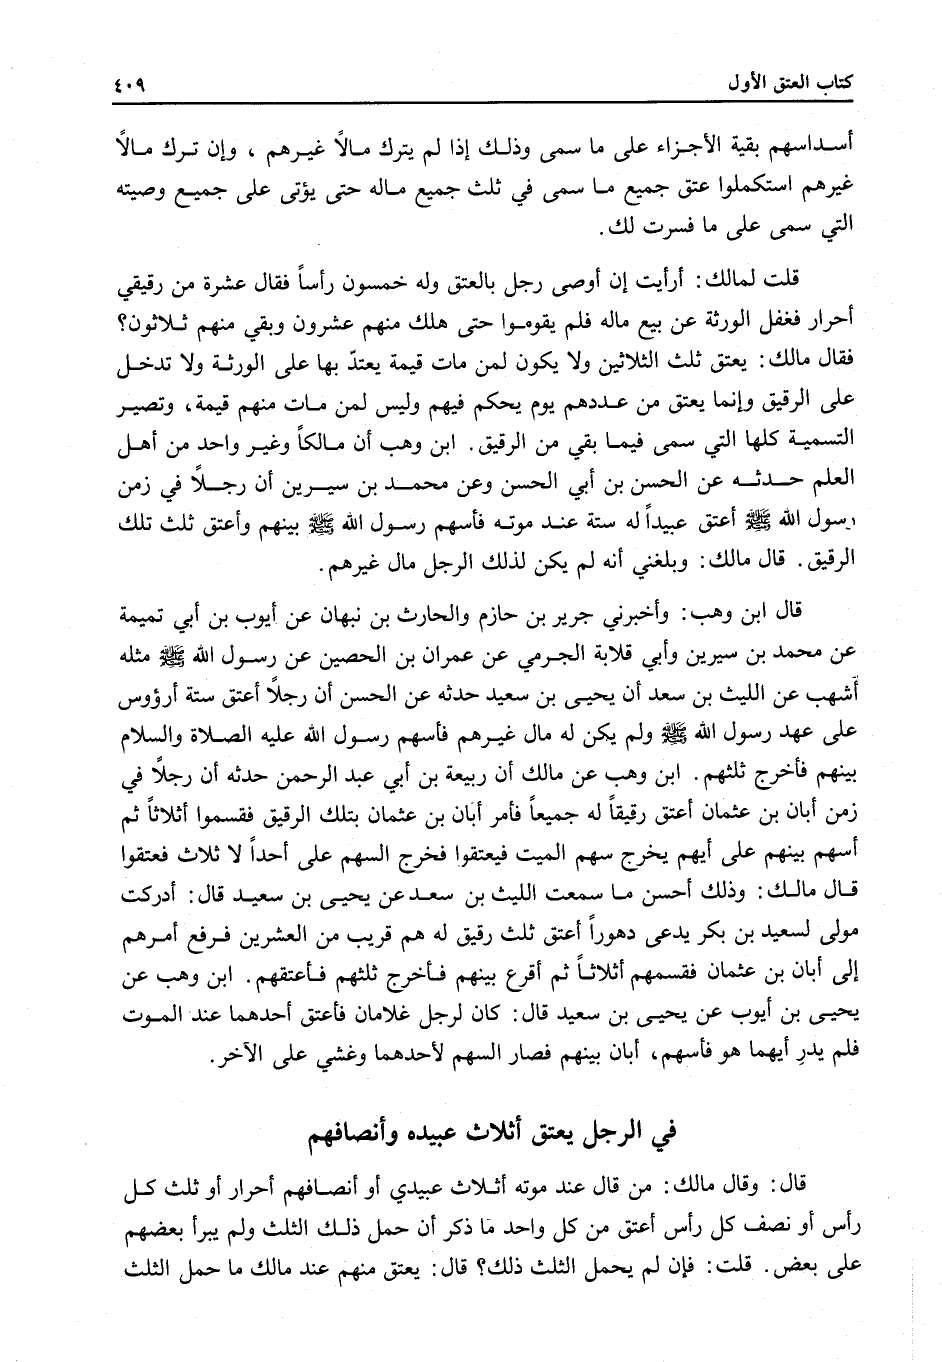 كتاب العتق الأول ٤٠٩
أسداسهم بقية الأجزاء على ما سمى وذلك إذا لم يترك مالاً غيرهم ، وإن ترك مالاً
غيرهم استكملوا عتق جميع ما سمى في ثلث جميع ماله حتى يؤتى على جميع وصيته
التي سمى على ما فسرت لك.
قلت لمالك: أرأيت إن أوصى رجل بالعتق وله خمسون رأساً فقال عشرة من رقيقي
أحرار فغفل الورثة عن بيع ماله فلم يقوموا حتى هلك منهم عشرون وبقي منهم ثلاثون؟
فقال مالك: يعتق ثلث الثلاثين ولا يكون لمن مات قيمة يعتدّ بها على الورثة ولا تدخل
على الرقيق وإنما يعتق من عددهم يوم يحكم فيهم وليس لمن مات منهم قيمة، وتصير
التسمية كلها التي سمى فيما بقي من الرقيق. ابن وهب أن مالكاً وغير واحد من أهل
العلم حدثه عن الحسن بن أبي الحسن وعن محمد بن سيرين أن رجلاً في زمن
رسول الله ﷺ أعتق عبيداً له ستة عند موته فأسهم رسول الله ﷺ بينهم وأعتق ثلث تلك
الرقيق. قال مالك: وبلغني أنه لم يكن لذلك الرجل مال غيرهم.
قال ابن وهب: وأخبرني جرير بن حازم والحارث بن نبهان عن أيوب بن أبي تميمة
عن محمد بن سيرين وأبي قلابة الجرمي عن عمران بن الحصين عن رسول الله ﷺ مثله
أشهب عن الليث بن سعد أن يحيى بن سعيد حدثه عن الحسن أن رجلاً أعتق ستة أرؤوس
على عهد رسول الله ﷺ ولم يكن له مال غيرهم فأسهم رسول الله عليه الصلاة والسلام
بينهم فأخرج ثلثهم. ابن وهب عن مالك أن ربيعة بن أبي عبد الرحمن حدثه أن رجلاً في
زمن أبان بن عثمان أعتق رقيقاً له جميعاً فأمر أبان بن عثمان بتلك الرقيق فقسموا أثلاثاً ثم
أسهم بينهم على أيهم يخرج سهم الميت فيعتقوا فخرج السهم على أحداً لا ثلاث فعتقوا
قال مالك: وذلك أحسن ما سمعت الليث بن سعد عن يحيى بن سعيد قال: أدركت
مولى لسعيد بن بكر يدعى دهوراً أعتق ثلث رقيق له هم قريب من العشرين فرفع أمرهم
إلى أبان بن عثمان فقسمهم أثلاثاً ثم أقرع بينهم فأخرج ثلثهم فأعتقهم. ابن وهب عن
يحيى بن أيوب عن يحيى بن سعيد قال: كان لرجل غلامان فأعتق أحدهما عند الموت
فلم يدرِ أيهما هو فأسهم، أبان بينهم فصار السهم لأحدهما وغشي على الآخر.
في الرجل يعتق أثلاث عبيده وأنصافهم
قال: وقال مالك: من قال عند موته أثلاث عبيدي أو أنصافهم أحرار أو ثلث كل
رأس أو نصف كل رأس أعتق من كل واحد ما ذكر أن حمل ذلك الثلث ولم يبرأ بعضهم
على بعض. قلت: فإن لم يحمل الثلث ذلك؟ قال: يعتق منهم عند مالك ما حمل الثلث